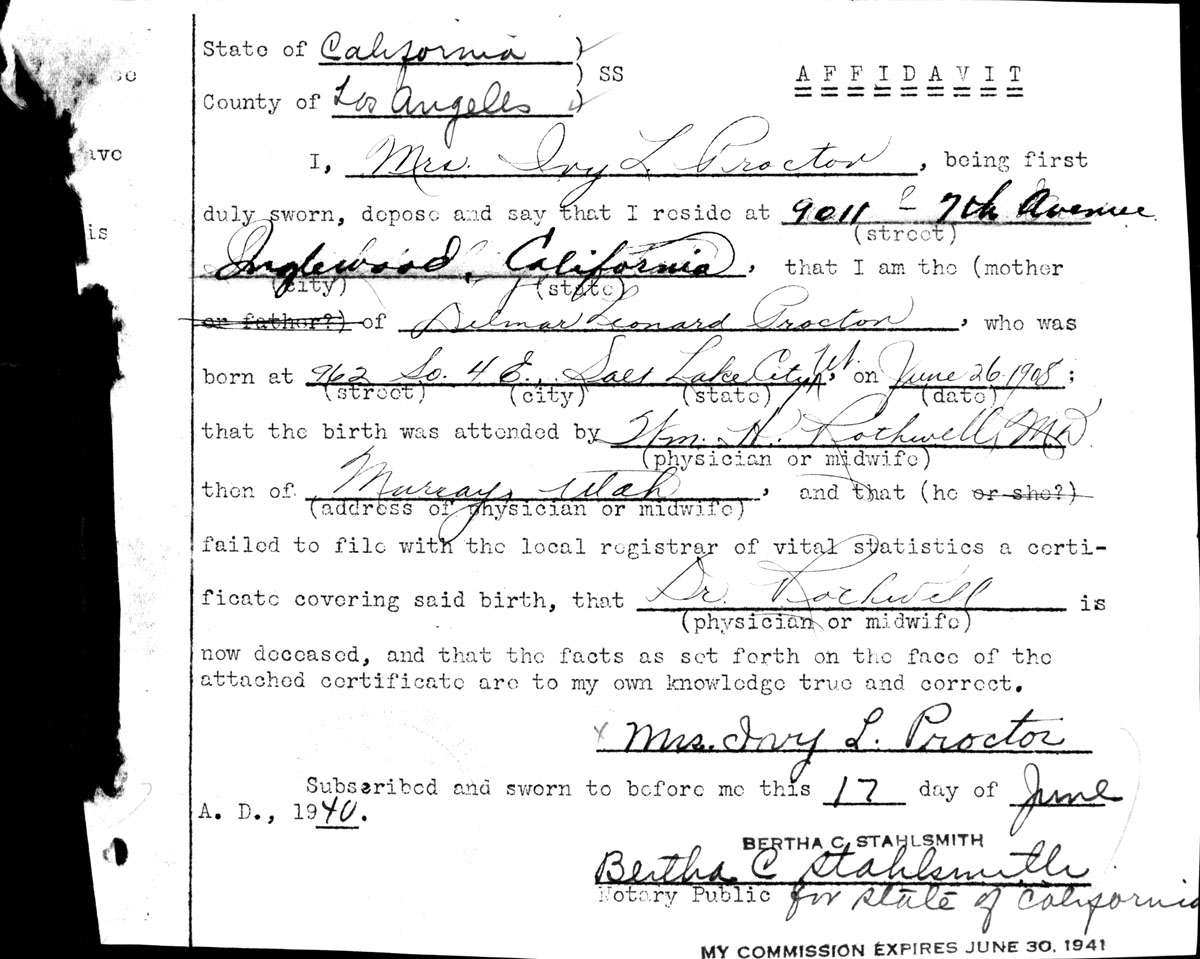 State of California )
) SS
County of Los Angeles )
AFFIDAVIT
I, Mrs. Ivy L Proctor, being first
duly sworn, depose and say that I reside at 9011 - 7th Avenue
(street)
Inglewood, California, that I am the (mother
(city) (state)
or father?) of Delmar Leonard Proctor, who was
born at 962 So. 4 E., Salt Lake City, Ut. on June 26 1908;
(street) (city) (state) (date)
that the birth was attended by Wm. H. Rothwell, MD
(physician or midwife)
then of Murray, Utah, and that (he or she?)
(address of physician or midwife)
failed to file with the local registrar of vital statistics a certi-
ficate covering said birth, that Dr. Rothwell is
(physician or midwife)
now deceased, and that the facts as set forth on the face of the
attached certificate are to my own knowledge true and correct.
x Mrs. Ivy L. Proctor
Subscribed and sworn to before me this 17 day of June
A. D., 1940.
BERTHA C. STAHLSMITH
Bertha C Stahlsmith
Notary Public for state of California
MY COMMISSION EXPIRES JUNE 30, 1941